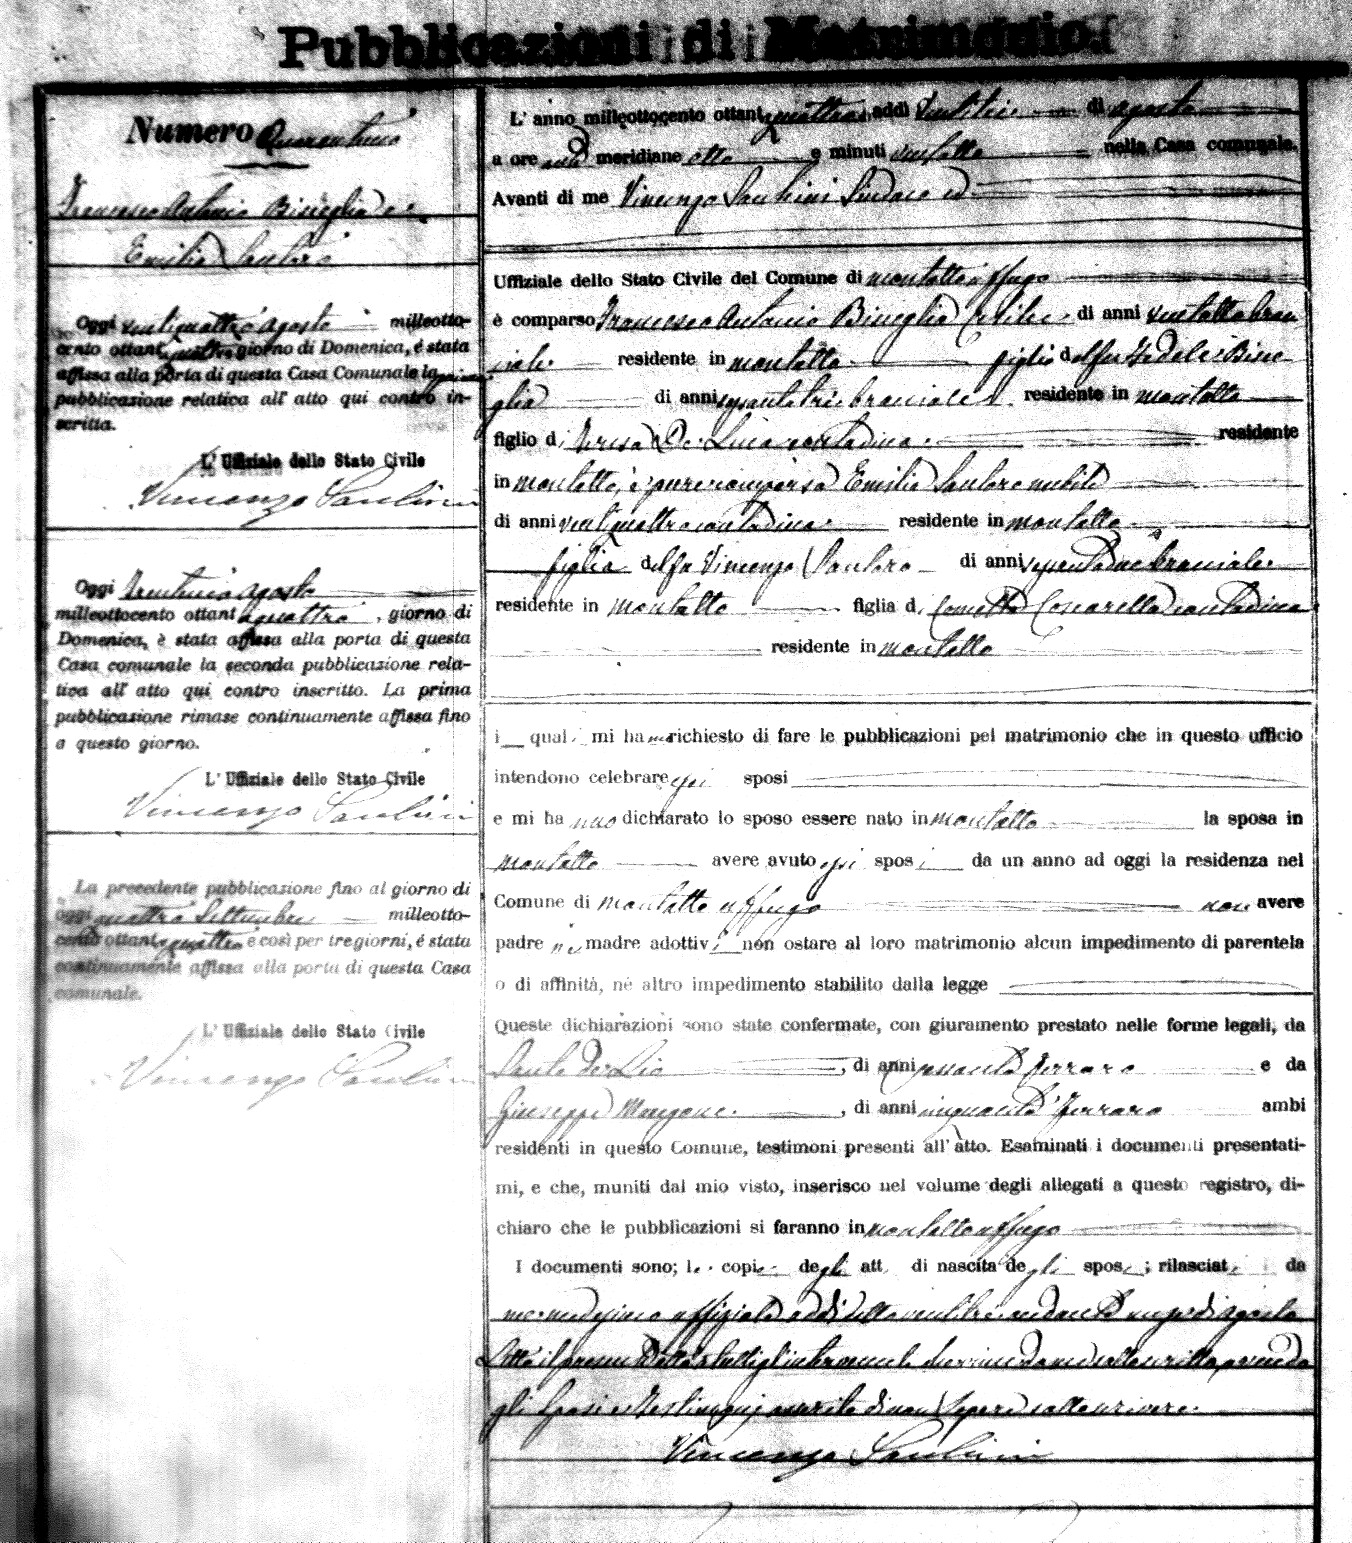 Pubblicazioni di Matrimonio.
Numero
Francesco Antonio Biseglia e
Emilia Santoro
Oggi ventiquattro agosto milleotto-
cento ottantaquattro giorno di Domenica, è stata
affissa alla porta di questa Casa Comunale la prima
pubblicazione relatica all' atto qui contro in-
scritta.
L' Uffiziale dello Stato Civile
Vincenzo
Oggi trentuno agosto
milleottocento ottantaquattro, giorno di
Domenica, è stata affissa alla porta di questa
Casa comunale la seconda pubblicazione rela-
tiva all' atto qui contro inscritto. La prima
pubblicazione rimase continuamente affissa fino
a questo giorno.
L' Uffiziale dello Stato Civile
Vincenzo
La precedente pubblicazione fino al giorno di
oggi quattro Settembre milleotto-
cento ottantaquattro e così per tre giorni, é stata
continuamente affissa alla porta di questa Casa
comunale.
L' Uffiziale dello Stato Civile
Vincenzo
L' anno milleottocento ottantaquattro, addì ventitre di agosto
a ore anti meridiane otto e minuti ventotto nella Casa comunale.
Avanti di me Vincenzo Sindaco ed
Uffiziale dello Stato Civile del Comune di Montalto Uffugo
è comparso Francesco Antonio Biseglia celibe di anni ventotto brac
ciale residente in Montalto figlio del fu Fedele Bise
glia di anni sessantatre bracciale residente in Montalto
figlio di Teresa De Luca contadina residente
in Montalto, è pure comparsa Emilia Santoro nubile
di anni ventiquattro contadina residente in Montalto
figlia del fu Vincenzo Santoro di anni bracciale
residente in Montalto figlia di contadina
residente in Montalto
i quali mi hanno richiesto di fare le pubblicazioni pel matrimonio che in questo ufficio
intendono celebrare essi sposi
e mi hanno dichiarato lo sposo essere nato in Montalto la sposa in
Montalto avere avuto essi sposi da un anno ad oggi la residenza nel
Comune di Montalto Uffugo non avere
padre nè madre adottivi non ostare al loro matrimonio alcun impedimento di parentela
o di affinità, nè altro impedimento stabilito dalla legge
Queste dichiarazioni sono state confermate, con giuramento prestato nelle forme legali, da
Sante De Lio, di anni sessanta ferraro e da
Giuseppe, di anni cinquanta ferraro ambi
residenti in questo Comune, testimoni presenti all' atto. Esaminati i documenti presentati-
mi, e che, muniti dal mio visto, inserisco nel volume degli allegati a questo registro, di-
chiaro che le pubblicazioni si faranno in Montalto Uffugo
I documenti sono; le copie degli atti di nascita degli sposi; rilasciate da
me medesimo uffiziale addì detto ventitre andante mese di agosto
Letto il presente atto a tutti gl'intervenuti sottoscritto, avendo
gli sposi e testimoni asserito di non sapere sottoscrivere.
Vincenzo